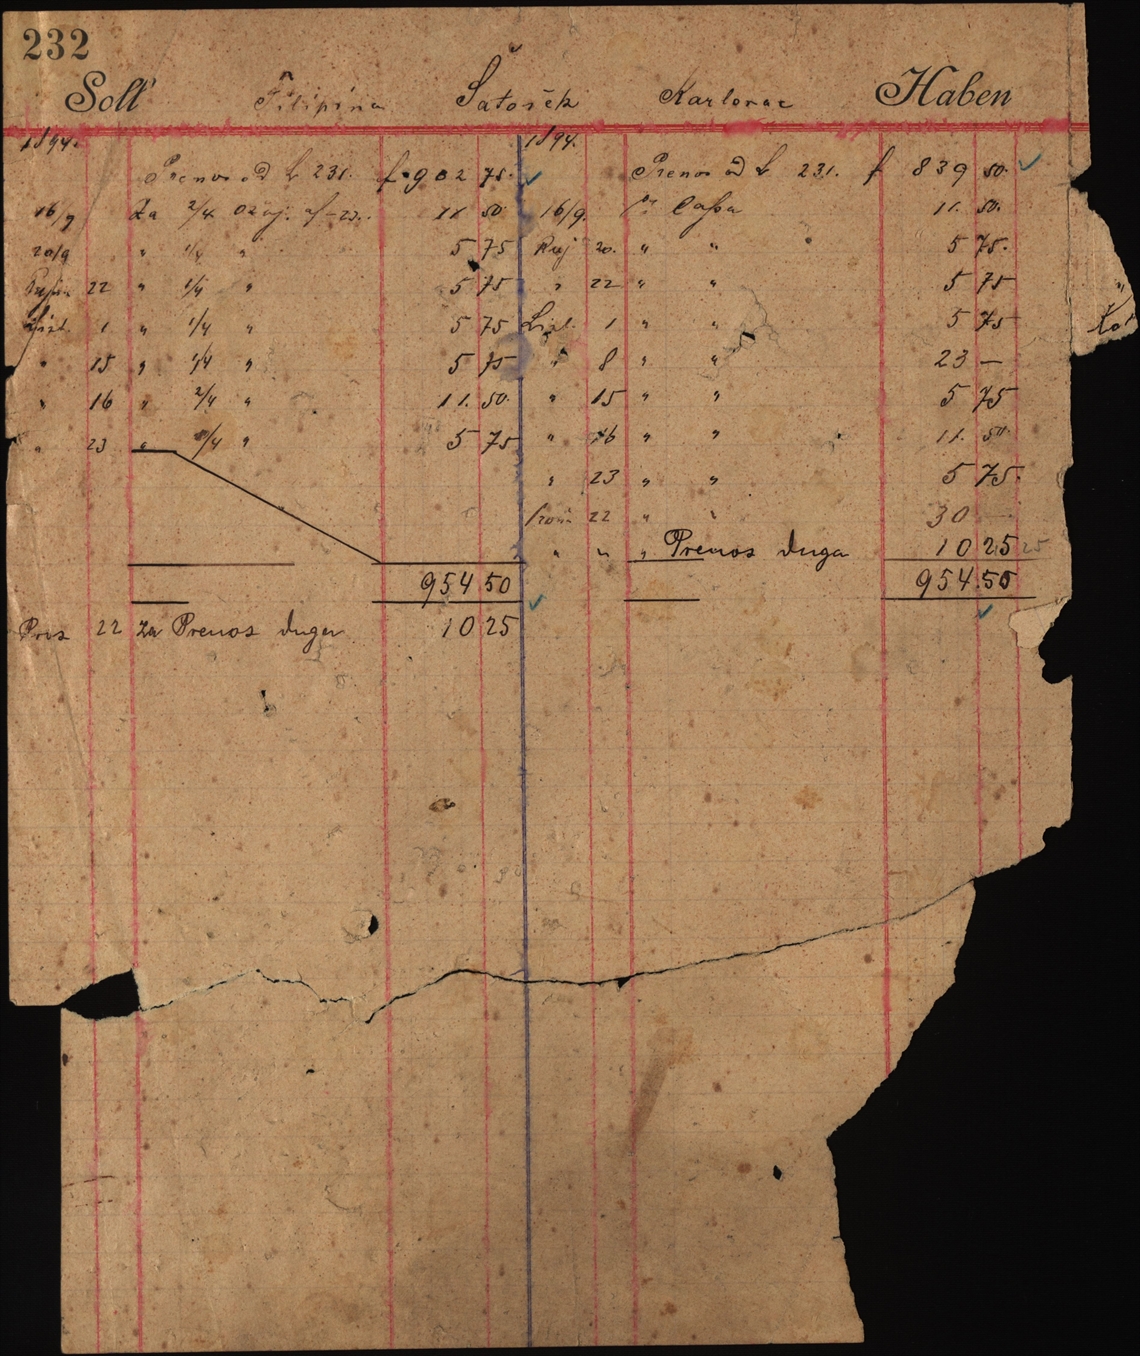 232
Soll Filipina Šatošek Karlovac Haben
1894. 1894.
Prenos od L 231. f 902 75. Prenos od L 231. f 839 50.
16/9 Za 2/4 11 50 16/9. Cassa 11. 50.
20/9 " 1/4 " 5 75 Ruj 20. " " 5 75.
Rujna 22 " 1/4 " 5 75 " 22 " " 5 75
List. 1 " 1/4 " 5 75 List. 1 " " 5 75
" 15 " 1/4 " 5 75 " 8 " " 23 —
" 16 " 2/4 " 11. 50. " 15 " " 5 75
" 23 " 1/4 " 5 75 " 16 " " 11. 50
" 23 " " 5 75.
22 " " 30 —
" " " Prenos duga 10 25 25
954 50 954.50
Pros 22 Za Prenos duga 10 25
"
Ko